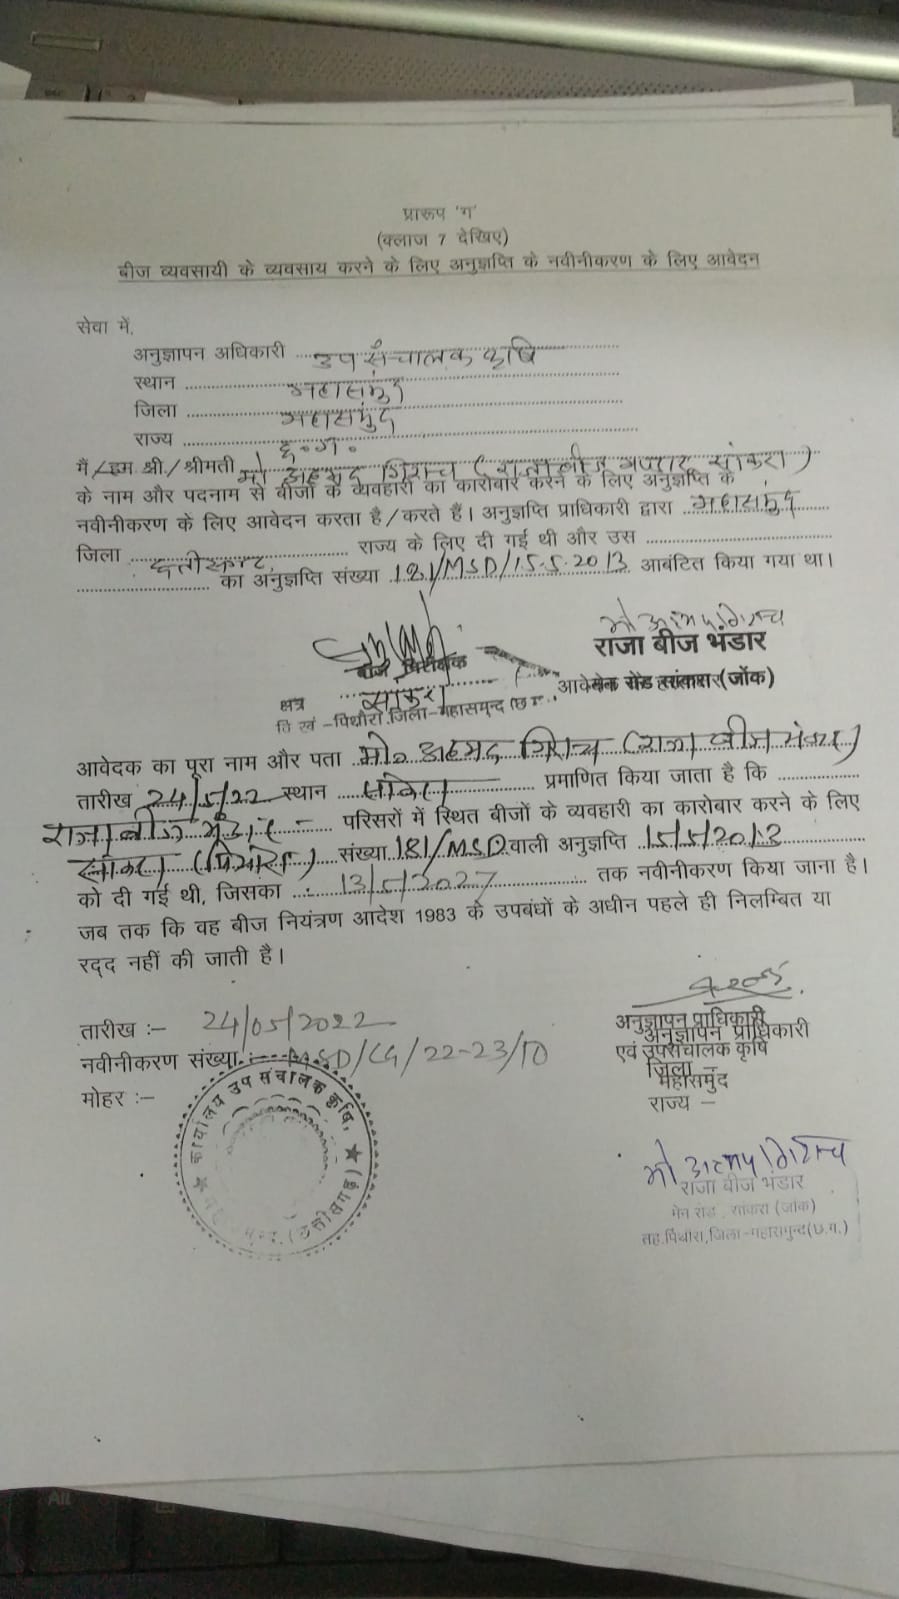 प्रारूप 'ग'
(क्लाज 7 देखिए)
बीज व्यवसायी के व्यवसाय करने के लिए अनुज्ञप्ति के नवीनीकरण के लिए आवेदन
सेवा में,
अनुज्ञापन अधिकारी उप संचालक कृषि
स्थान महासमुंद
जिला महासमुंद
राज्य छ.ग.
मैं/हम श्री/श्रीमती मो अहमद (राजा बीज भण्डार सांकरा)
के नाम और पदनाम से बीजों के व्यवहारी का कारोबार करने के लिए अनुज्ञप्ति के
नवीनीकरण के लिए आवेदन करता है/करते हैं। अनुज्ञप्ति प्राधिकारी द्वारा महासमुंद
जिला छत्तीसगढ़ राज्य के लिए दी गई थी और उस
का अनुज्ञप्ति संख्या 181/MSD/15.5.2013 आबंटित किया गया था।
राजा बीज भंडार
बीज निरीक्षक
मेन रोड सांकरा (जोंक)
क्षेत्र सांकरा
वि खं -पिथौरा, जिला-महासमुन्द (छ
आवेदक का पूरा नाम और पता मो. अहमद (राजा बीज भंडार)
तारीख 24/5/22 स्थान सांकरा प्रमाणित किया जाता है कि
राजा बीज भंडार परिसरों में स्थित बीजों के व्यवहारी का कारोबार करने के लिए
सांकरा (पिथौरा) संख्या 181/MSD वाली अनुज्ञप्ति 15/5/2013
को दी गई थी, जिसका 13/5/2027 तक नवीनीकरण किया जाना है।
जब तक कि वह बीज नियंत्रण आदेश 1983 के उपबंधों के अधीन पहले ही निलम्बित या
रद्द नहीं की जाती है।
तारीख :- 24/05/2022
अनुज्ञापन प्राधिकारी
अनुज्ञापन प्राधिकारी
नवीनीकरण संख्या :- MSD/CG/22-23/10
एवं उपसंचालक कृषि
जिला -
महासमुंद
मोहर :-
राज्य -
कार्यालय उप संचालक कृषि, (छत्तीसगढ़)
राजा बीज भंडार
मेन रोड, सांकरा (जोंक)
तह.पिथौरा, जिला-महासमुन्द(छ.ग.)